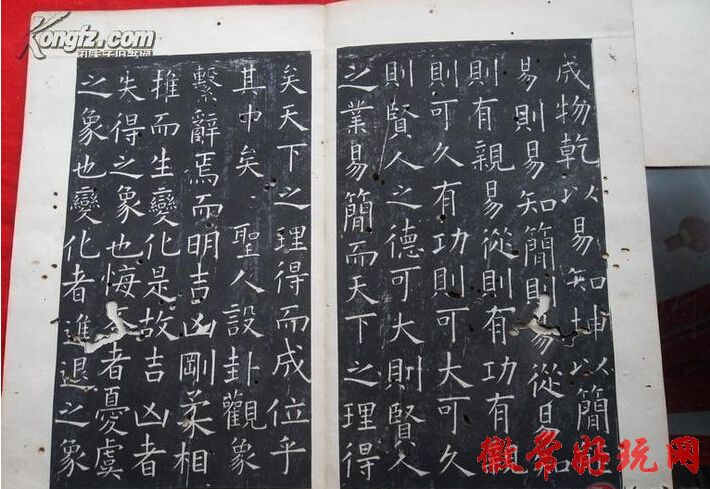 成物乾以易知坤以簡
易則易知簡則易從易知
則有親易從則有功有親
則可久有功則可大可久
則賢人之德可大則賢人
之業易簡而天下之理得
矣天下之理得而成位乎
其中矣 聖人設卦觀象
繫辭焉而明吉凶剛柔相
推而生變化是故吉凶者
失得之象也悔者憂虞
之象也變化者進退之象
Kongfz.com
孔夫子旧书网
微常好玩网